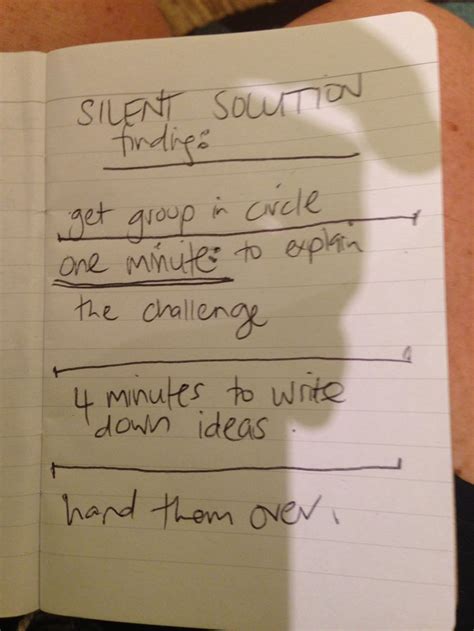 SILENT SOLUTION
finding:
get group in circle
one minute: to explain
the challenge
4 minutes to write
down ideas.
hand them over.